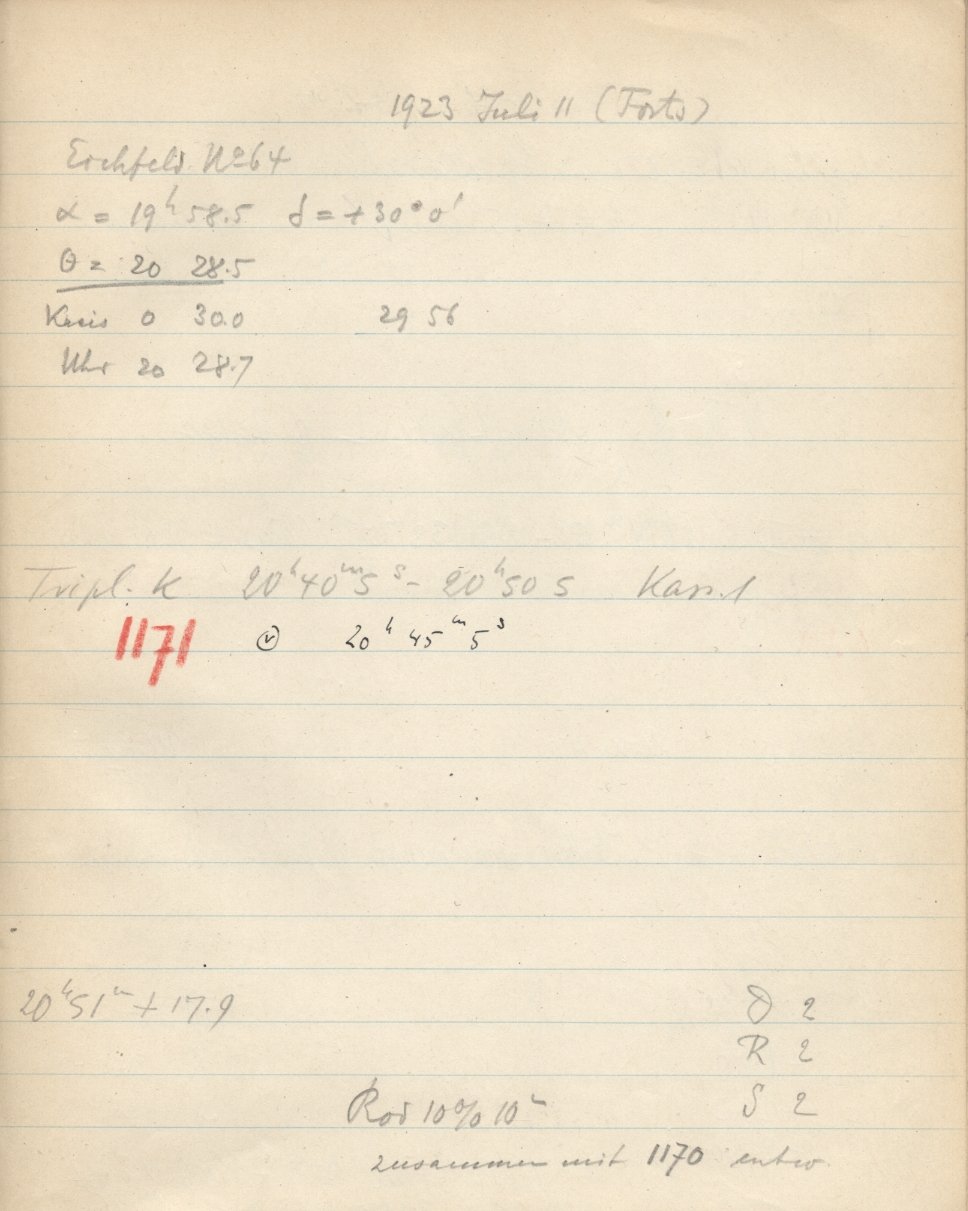 1923 Juli 11 (Forts)
Eichfeld No 64
α = 19ʰ 58.5 δ = +30° 0'
θ = 20 28.5
Kreis 0 30.0 29 56
Uhr 20 28.7
Tripl. K 20ʰ40ᵐ5ˢ - 20ʰ50 5 Kass. 1
1171 20ʰ 45ᵐ 5ˢ
20ʰ51ᵐ + 17.9 D 2
R 2
Rod 10% 10ᵐ S 2
zusammen mit 1170 entw.